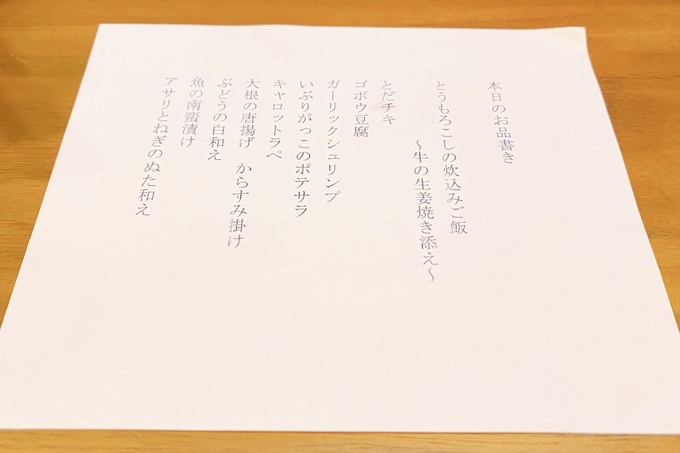 本日のお品書き
とうもろこしの炊込みご飯
～牛の生姜焼き添え～
とだチキ
ゴボウ豆腐
ガーリックシュリンプ
いぶりがっこのポテサラ
キャロットラペ
大根の唐揚げ　からすみ掛け
ぶどうの白和え
魚の南蛮漬け
アサリとねぎのぬた和え